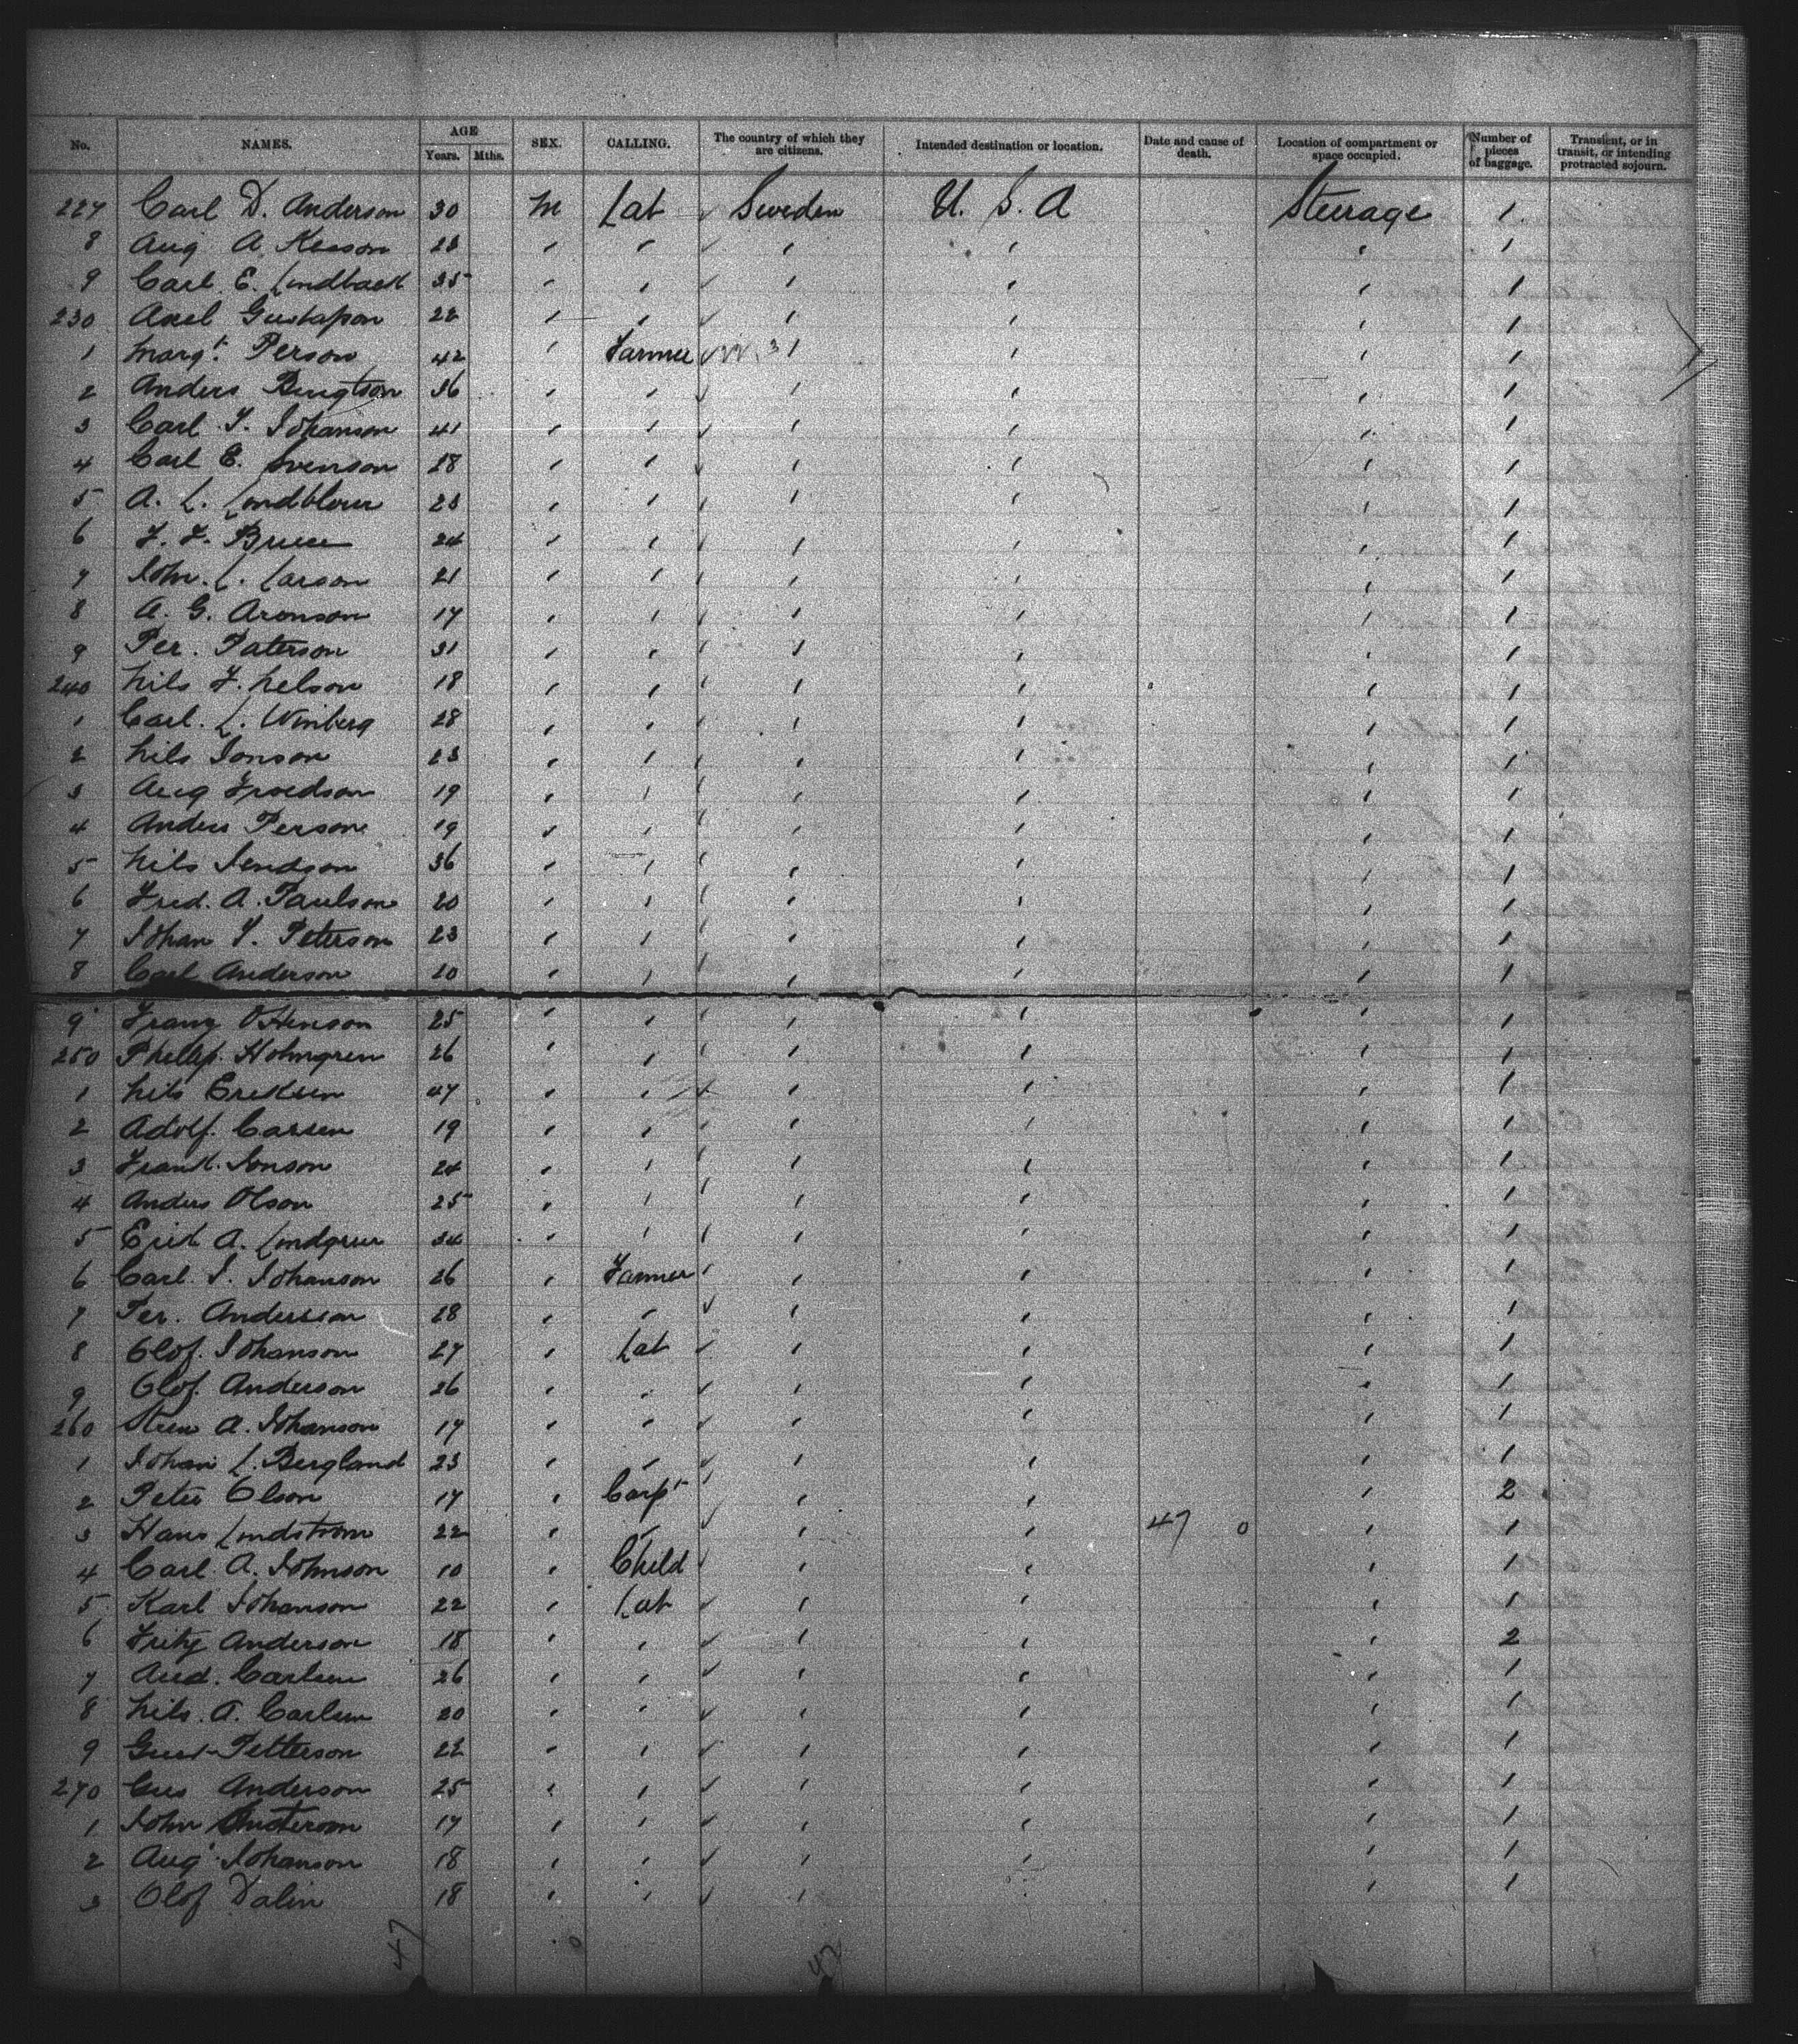 No. NAMES. AGE Years. Mths. SEX. CALLING. The country of which they are citizens. Intended destination or location. Date and cause of death. Location of compartment or space occupied. Number of pieces of baggage. Transient, or in transit, or intending protracted sojourn.
227 Carl D. Anderson 30 M Lab Sweden U. S. A Steerage 1
8 Aug A 23 1
9 Carl E. Lindback 35 1
230 Axel Gustafson 22 1
1 Margt. Person 42 Farmer 1
2 Anders Bengtson 36 1
3 Carl J. Johanson 41 1
4 Carl E. Svenson 28 1
5 A. L. Lindblom 23 1
6 24 1
7 John. L. Larson 21 1
8 A. G. Aronson 17 1
9 Per. Paterson 31 1
240 Nils F. Nelson 18 1
1 Carl. L. Winberg 28 1
2 Nils Jonson 23 1
3 Aug 19 1
4 Anders Person 19 1
5 Nils 36 1
6 Fred. A. Paulson 20 1
7 Johan J. Peterson 23 1
8 Carl Anderson 20 1
9 Franz 25 1
250 Phillip. Holmgren 26 1
1 Nils Eriksen 47 1
2 Adolf. Carsen 19 1
3 Frank. Jonson 24 1
4 Anders Olson 25 1
5 Erik A. Lindgren 34 1
6 Carl J. Johanson 26 Farmer 1
7 Per. Andersson 28 1
8 Olof. Johanson 27 Lab 1
9 Olof. Anderson 26 1
260 A. Johanson 17 1
1 Johan L. Bergland 23 1
2 Peter Olson 17 Carpt 2
3 Hans Lindstrom 22 47 0 1
4 Carl A. Johnson 10 Child 1
5 Karl Johanson 22 Lab 1
6 Fritz Anderson 18 2
7 And. Carlsen 26 1
8 Nils. A. Carlsen 20 1
9 Gust Petterson 22 1
270 Gus Anderson 25 1
1 John Anderson 17 1
2 Aug Johanson 18 1
3 Olof Dalin 18 1
47